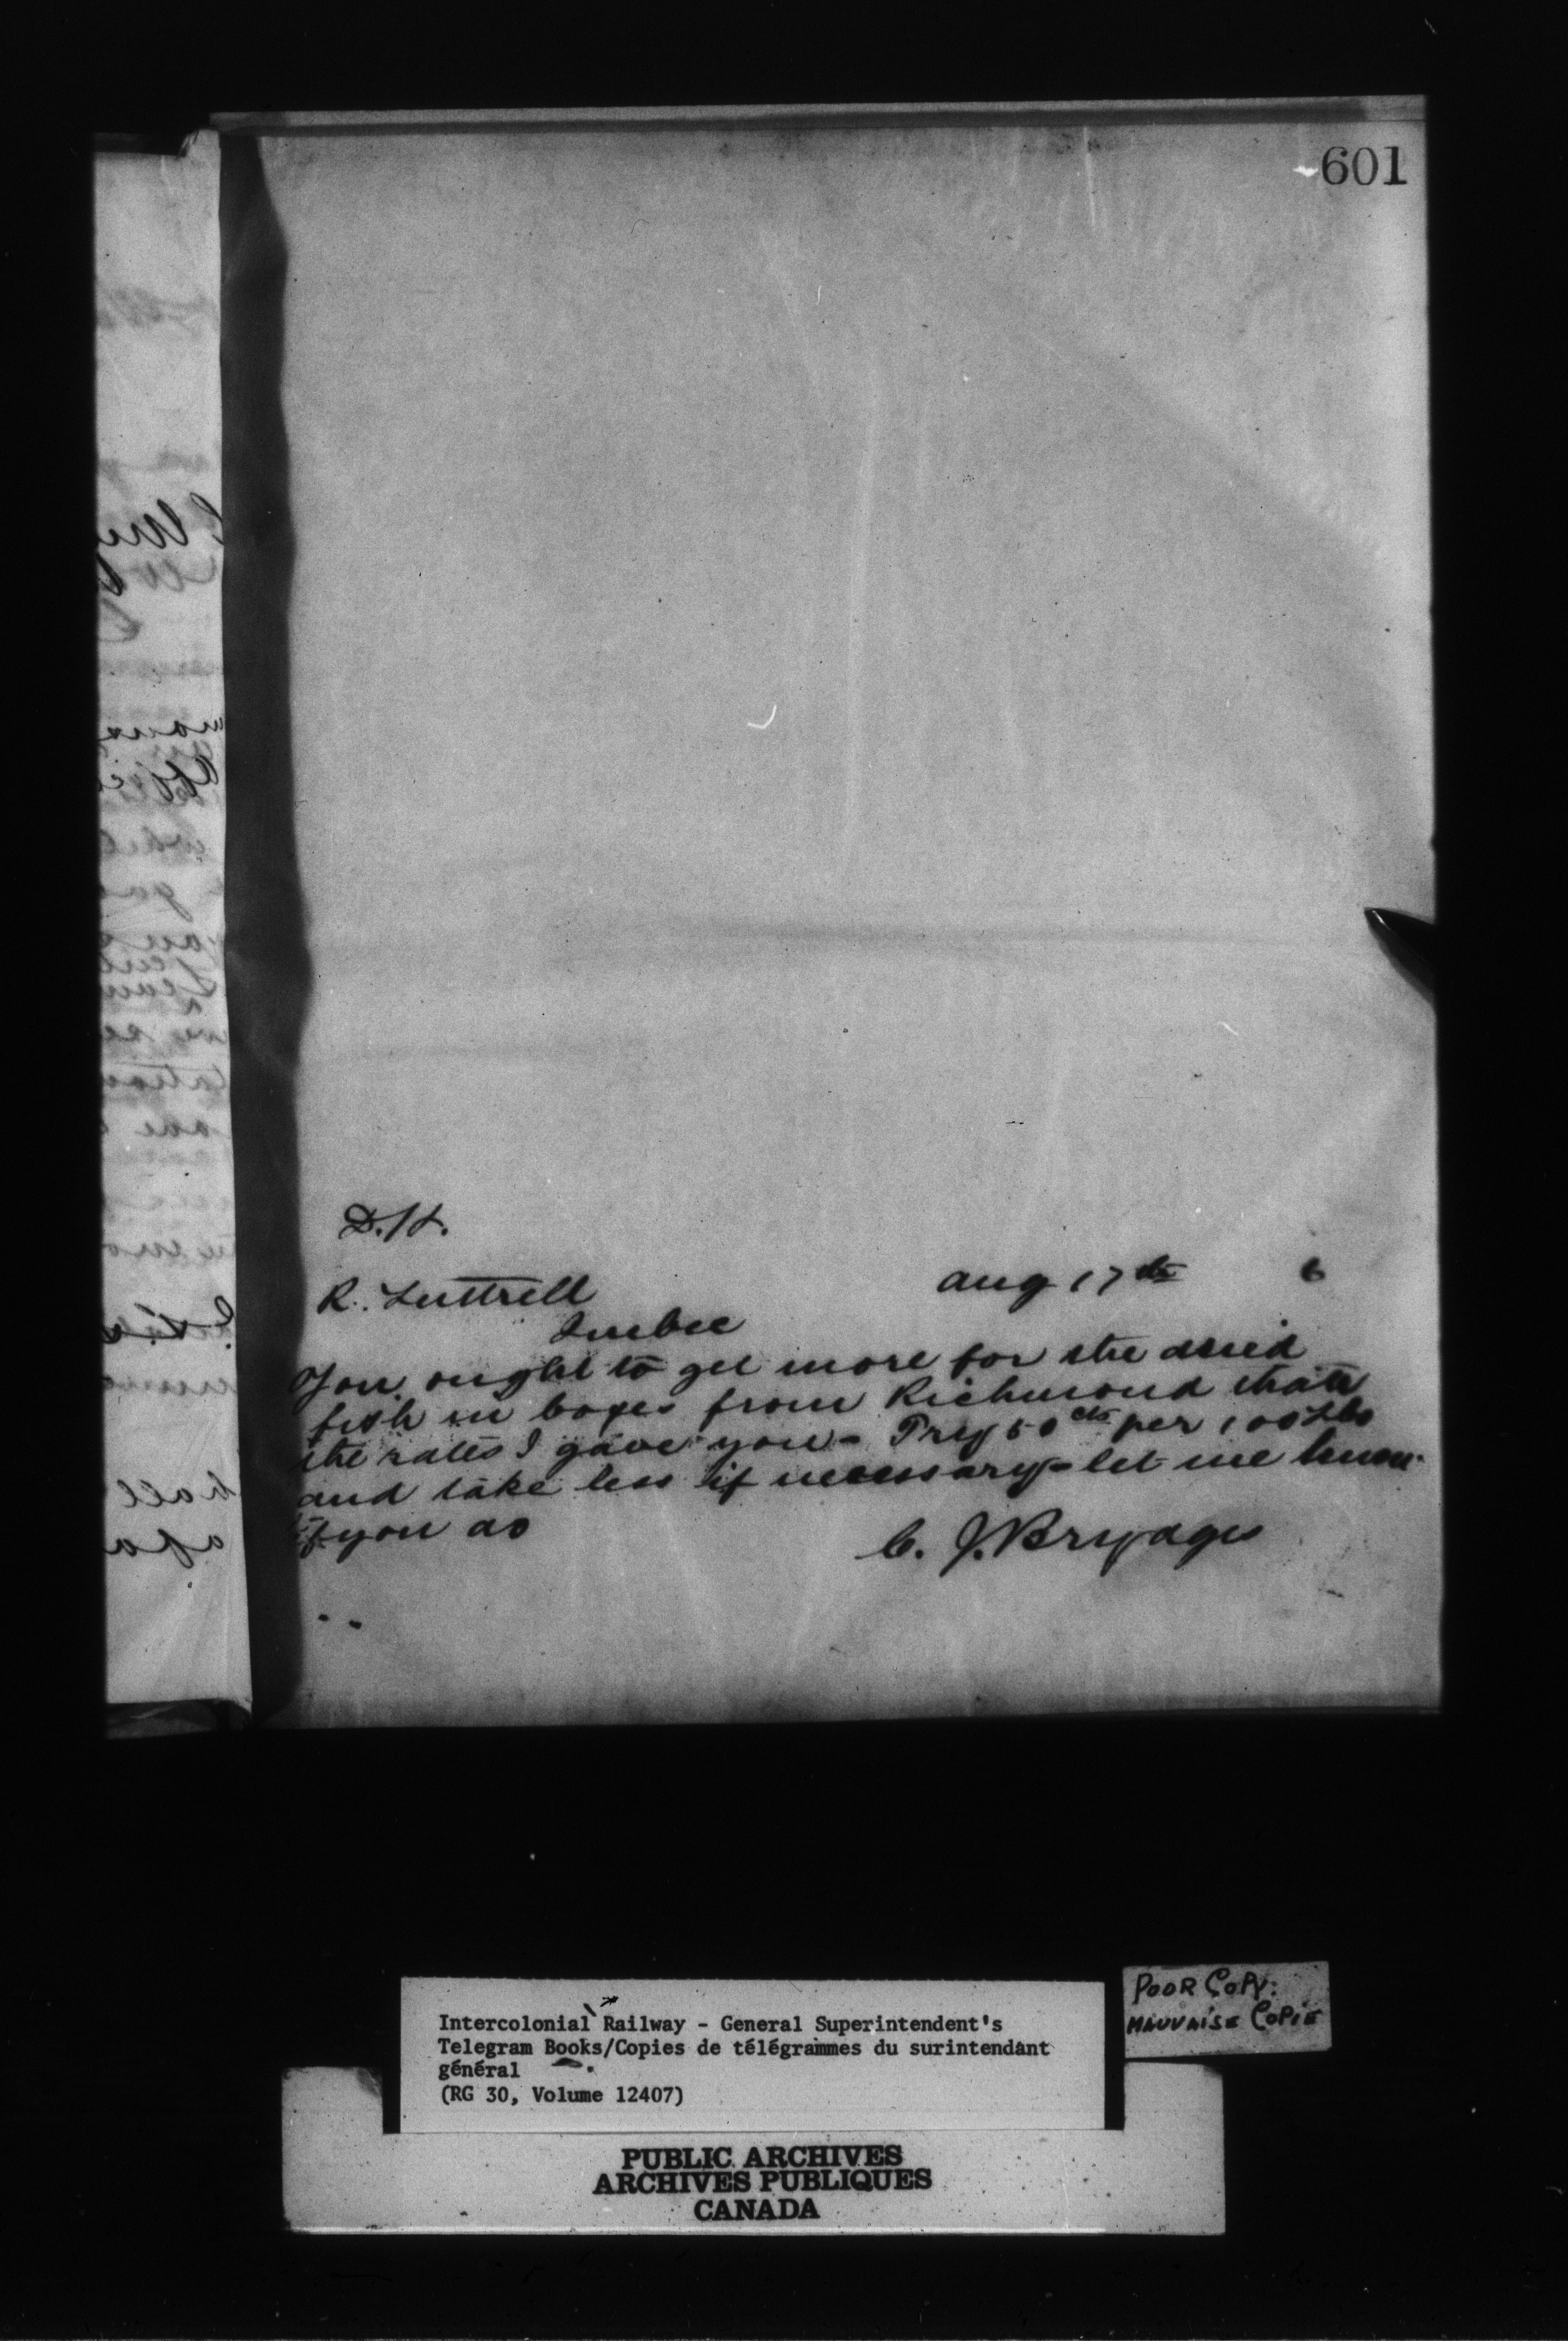 601
D.H.
R. Luttrell
Aug 17th 6
Quebec
You ought to get more for the dried
fish in boxes from Richmond than
the rates I gave you - Try 50 cts per 100 Lbs
and take less if necessary - let me know
if you do
C. J. Brydges
Intercolonial Railway - General Superintendent's
Telegram Books/Copies de télégrammes du surintendant
général
(RG 30, Volume 12407)
POOR COPY:
MAUVAISE COPIE
PUBLIC ARCHIVES
ARCHIVES PUBLIQUES
CANADA